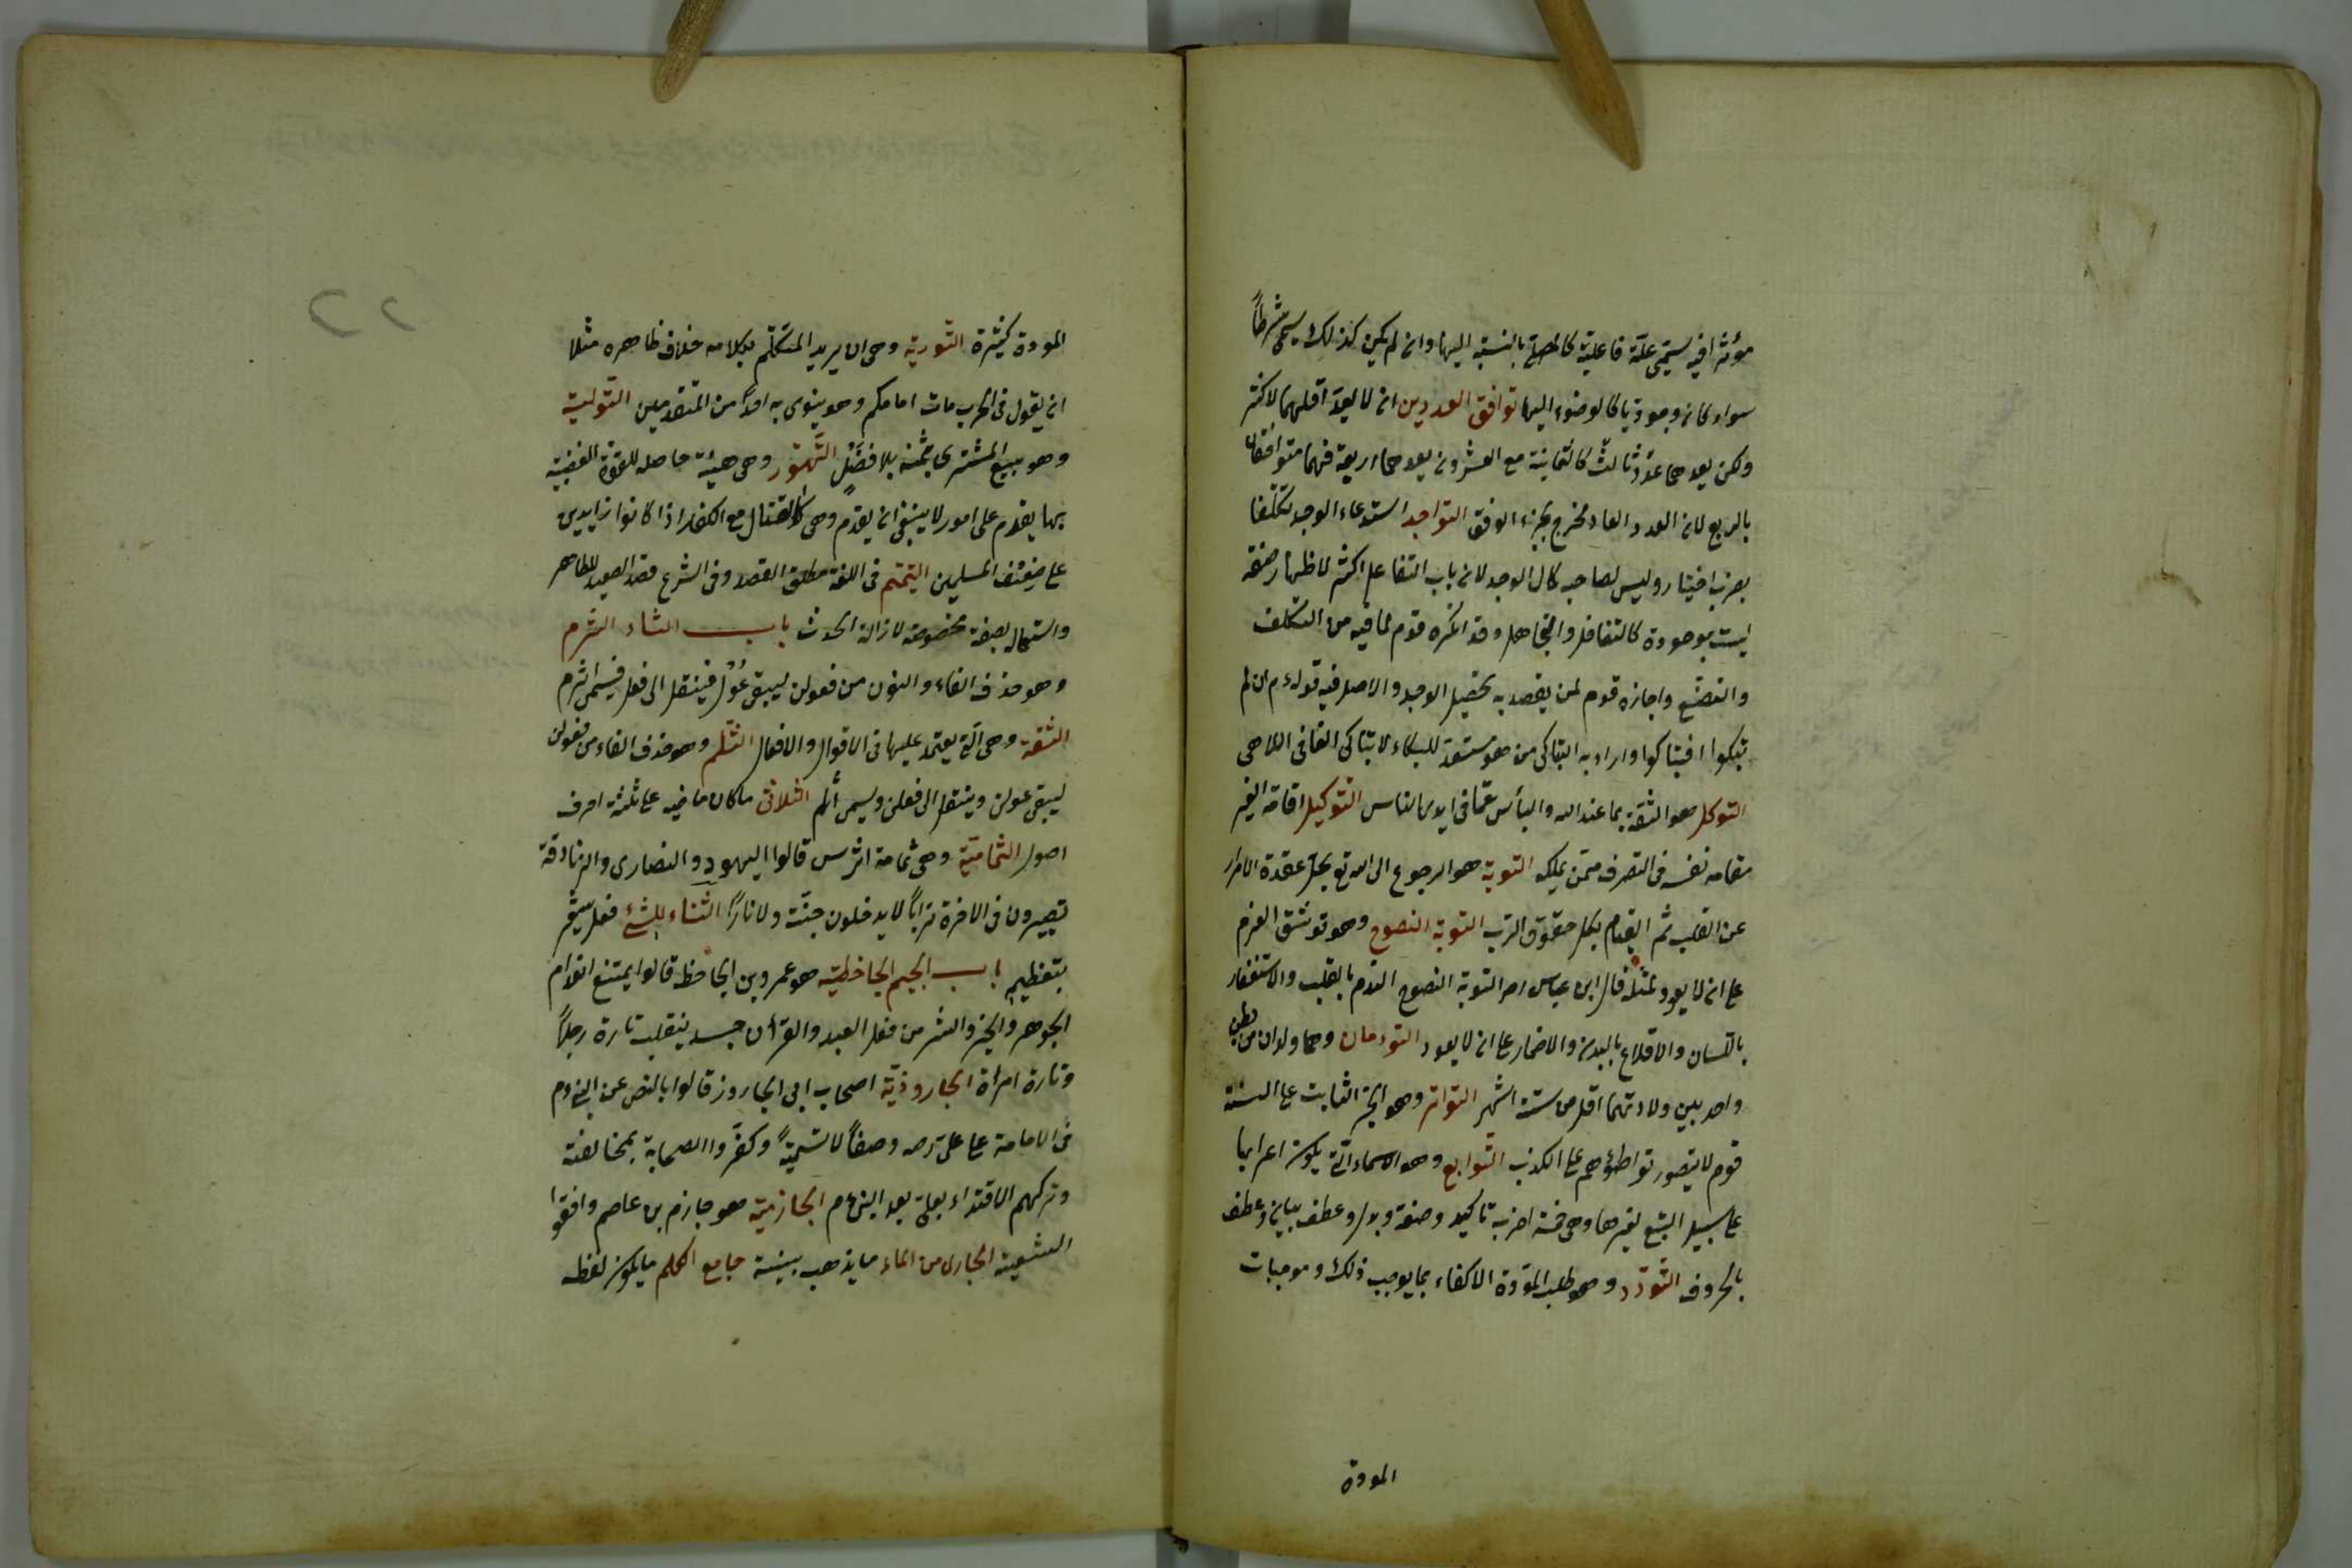 مؤثرا فيه يسمى علة فاعلية كالمصلى بالنسبة اليها وان لم يكن كذلك يسمى شرطاً
سواء كان وجوديا كالوضوء اليها توافق العددين ان لا يعد اقلهما لاكثر
ولكن يعدهما عدد ثالث كالثمانية مع العشرون يعدهما اربعة فهما متوافقان
بالربع لان العدد العاد مخرج بجزء الوفق التواجد استدعاء الوجد تكلفا
بضرب اختيار وليس لصاحبه كمال الوجد لان باب التفاعل اكثر لاظهار صفة
ليست بموجودة كالتغافل والتجاهل وقد انكره قوم لما فيه من التكلف
والتصنع واجازه قوم لمن يقصد به تحصيل الوجد والاصل فيه قوله عم ان لم
تبكوا فتباكوا واراد به التباكى من هو مستعد للبكاء لا تباكى الغافل اللاهى
التوكل هو الثقة بما عند الله واليأس عما فى ايدى الناس التوكيل اقامة الغير
مقامه نفسه فى التصرف ممن يملكه التوبة هو الرجوع الى الله تع بحل عقدة الاصرار
عن القلب ثم القيام بكل حقوق الرب التوبة النصوح وهو توثيق العزم
على ان لا يعود لمثله قال ابن عباس رضه التوبة النصوح الندم بالقلب والاستغفار
باللسان والاقلاع بالبدن والاضمار على ان لا يعود التوءمان وهما ولدان من بطن
واحد بين ولادتهما اقل من ستة اشهر التواتر وهو الخبر الثابت على السنة
قوم لا يتصور تواطؤهم على الكذب التوابع وهو الاسماء التى يكون اعرابها
على سبيل التبع لغيرها وهى خمسة اضرب تاكيد وصفة وبدل وعطف بيان وعطف
بالحروف التودد وهو طلب المودة الاكفاء بما يوجب ذلك وموجبات
المودة
٢٢
المودة كثيرة التورية وهى ان يريد المتكلم بكلامه خلاف ظاهره مثلا
ان يقول فى الحرب مات امامكم وهو ينوى به احداً من المتقدمين التولية
وهو بيع المشترى بثمنه بلا فضل التهور وهى هيئة حاصله للقوة الغضبية
بها يقدم على امور لا ينبغى ان يقدم وهى كالقتال مع الكفار اذا كانوا زايدين
على ضعف المسلمين التيمم فى اللغة مطلق القصد وفى الشرع قصد الصعيد الطاهر
واستعماله بصفة مخصوصة لازالة الحدث باب الثاء الثرم
وهو حذف الفاء والنون من فعولن ليبقى عُوْلُ فينتقل الى فعل فيسمى اثرم
الثقة وهى التى يعتمد عليها فى الاقوال والافعال الثلم وهو حذف الفاء من فعولن
ليبقى عولن وينتقل الى فعلن ويسمى أثلم الثلاثى ما كان ماضيه على ثلثة احرف
اصول الثمامية وهى ثمامة اشرس قالوا اليهود والنصارى والزنادقة
تصيرون فى الاخرة تراباً لا يدخلون جنة ولا ناراً الثناء للشئ فعل يشعر
بتعظيمه باب الجيم الجاحظية هو عمرو بن الجاحظ قالوا يمتنع انعدام
الجوهر والخير والشر من فعل العبد والقرآن جسد ينقلب تارة رجلاً
وتارة امرأة الجاروذية اصحاب ابى الجاروز قالوا بالنص عن النبى عم
فى الامامة على على رضه وصفاً لا تسمية وكفّروا الصحابة بمخالفته
وتركهم الاقتداء بعلى بعد النبى عم الجازمية هو جازم بن عاصم وافقوا
الشعيبة الجارى من الماء ما يذهب بتبنة جامع الكلم ما يكون لفظه